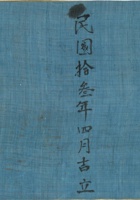 民國拾叁年四月吉立